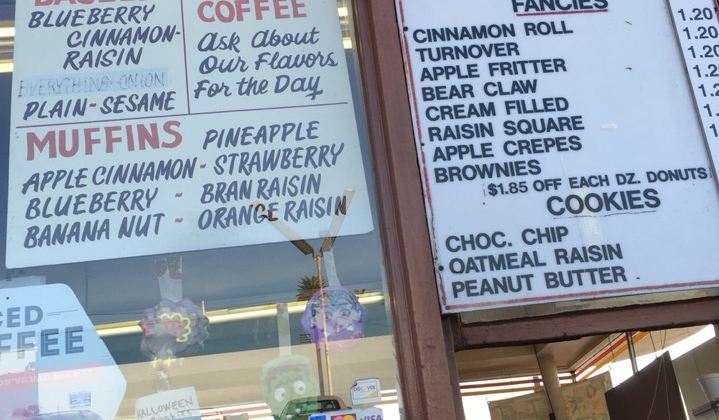 BLUEBERRY
CINNAMON-
RAISIN
EVERYTHING-ONION
PLAIN-SESAME
COFFEE
Ask About
Our Flavors
For the Day
MUFFINS PINEAPPLE
APPLE CINNAMON - STRAWBERRY
BLUEBERRY - BRAN RAISIN
BANANA NUT - ORANGE RAISIN
FANCIES
CINNAMON ROLL 1.20
TURNOVER 1.20
APPLE FRITTER 1.20
BEAR CLAW
CREAM FILLED
RAISIN SQUARE
APPLE CREPES
BROWNIES
$1.85 OFF EACH DZ. DONUTS
COOKIES
CHOC. CHIP
OATMEAL RAISIN
PEANUT BUTTER
CED
FFEE
HALLOWEEN
VISA